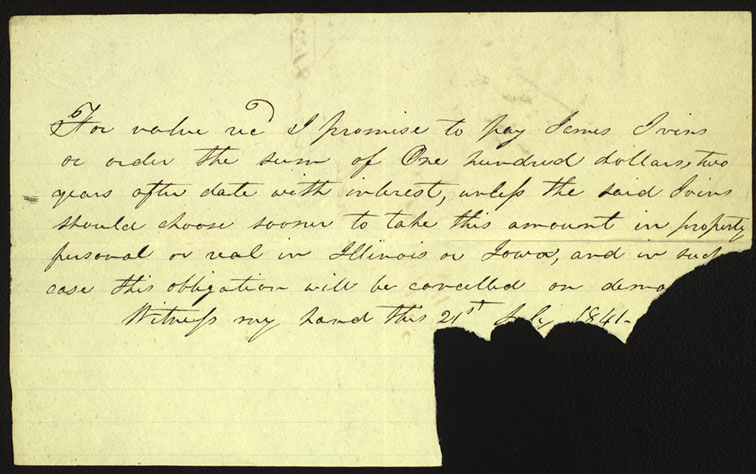 For value recd I promise to pay James Ivins
or order the sum of One hundred dollars, two
years after date with interest, unless the said Ivins
should choose sooner to take this amount in property
personal or real in Illinois or Iowa, and in such
case this obligation will be cancelled on dema
Witness my hand this 21st July 1841-